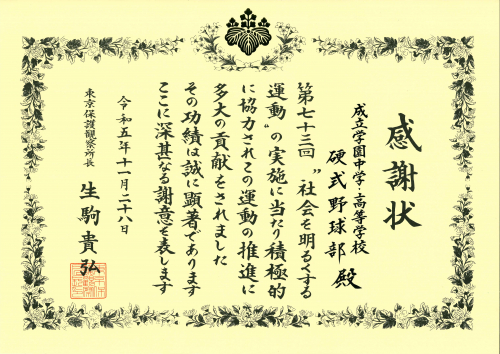 感謝状
成立学園中学・高等学校
硬式野球部 殿
第七十三回 〝社会を明るくする
運動〟の実施に当たり積極的
に協力されこの運動の推進に
多大の貢献をされました
その功績は誠に顕著であります
ここに深甚なる謝意を表します
令和五年十一月二十八日
東京保護観察所長
生駒貴弘